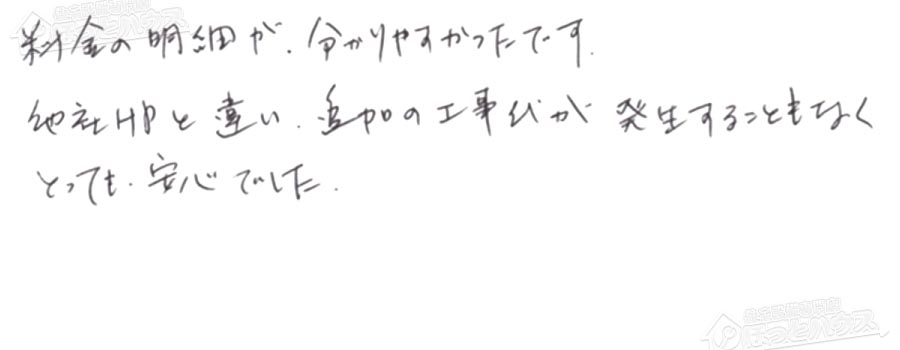 料金の明細が、分かりやすかったです。
他社HPと違い、追加の工事代が発生することもなく
とっても、安心でした。
ほっとハウス